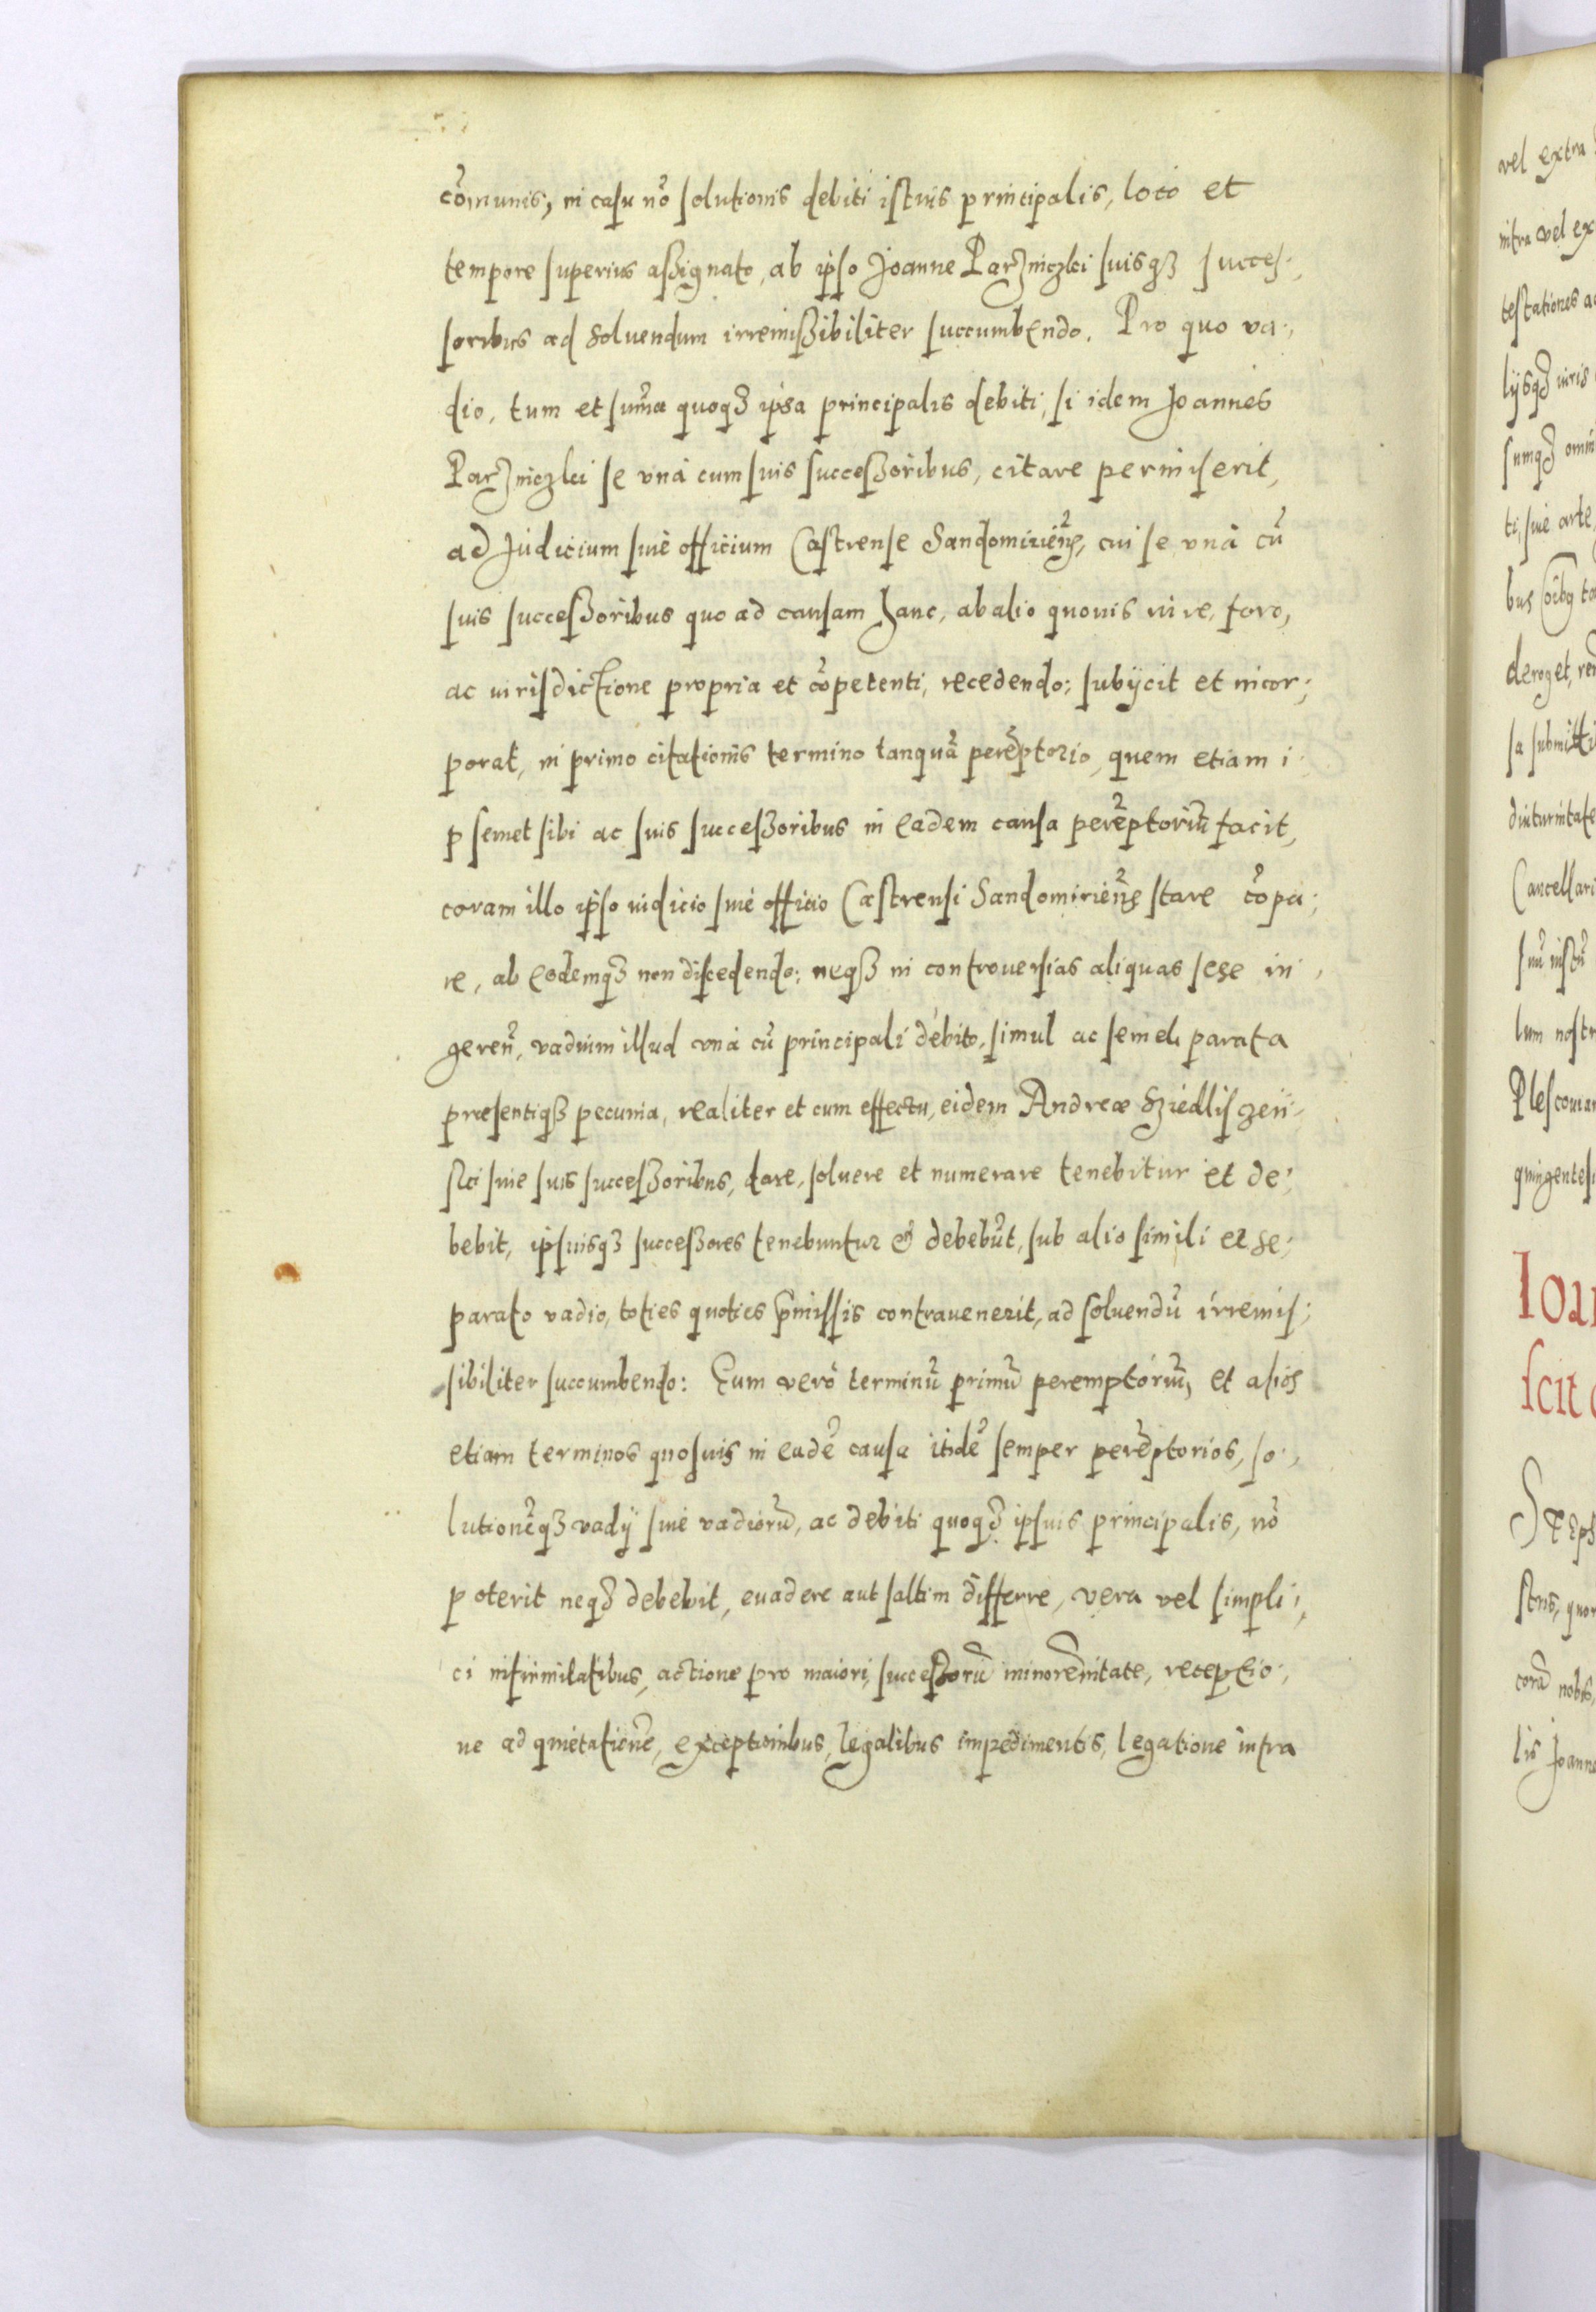 cõmunis, in casu nõ solutionis debiti istius principalis, loco et
tempore superius assignato, ab ipso Joanne Parzniczki suisqȝ succes:
soribus ad soluendum irremissibiliter succumbendo. Pro quo va:
dio, tum et sum̃a quoqȝ ipsa principalis debiti, si idem Joannes
Parzniczki se vnà cum suis successoribus, citare permiserit,
ad Judicium siue officium Castrense Sandomirieñs, cui se vnà cũ
suis successoribus quo ad causam hanc, ab alio quouis iure, foro,
ac iurisdictione propria et cõpetenti, recedendo; subijcit et incor:
porat, in primo citationis termino tanquã perẽptorio, quem etiam i
psemet sibi ac suis successoribus in eadem causa perẽptoriũ facit,
coram illo ipso iudicio siue officio Castrensi Sandomirieñs stare cõpa:
re, ab eodemqȝ non discedendo; neqȝ in controuersias aliquas sese in:
gereñ, vadium illud vnà cũ principali debito, simul ac semel, parata
præsentiqȝ pecunia, realiter et cum effectu, eidem Andreæ Sziedlisczen:
ski siue suis successoribus, dare, soluere et numerare tenebitur et de:
bebit, ipsiusqȝ successores tenebuntur & debebũt, sub alio simili et se:
parato vadio, toties quoties p̃missis contrauenerit, ad soluendũ irremis:
sibiliter succumbendo: Eum verò terminũ primũ peremptóriũ, et alios
etiam terminos quosuis in eadẽ causa itidẽ semper perẽptorios, so:
lutionẽqȝ vadÿ siue vadiorũ, ac debiti quoqȝ ipsius principalis, nõ
poterit neqȝ debebit, euadere aut saltim differre, vera vel simpli:
ci infirmitatibus, actione pro maiori, successorũ minorẽnitate, receptio:
ne ad quietationẽ, exceptionibus, legalibus impedimentis, legatione intra
vel extra
intra vel ex
testationes a
lijsqȝ iuris
sumqȝ omni
ti, siue arte
deroget, ren
sa submitti
diuturnitate
Cancellari
lum nostr
Plescouia
quingentesi
Ioa
scit
Steph
corã nobis,
lis Joanne